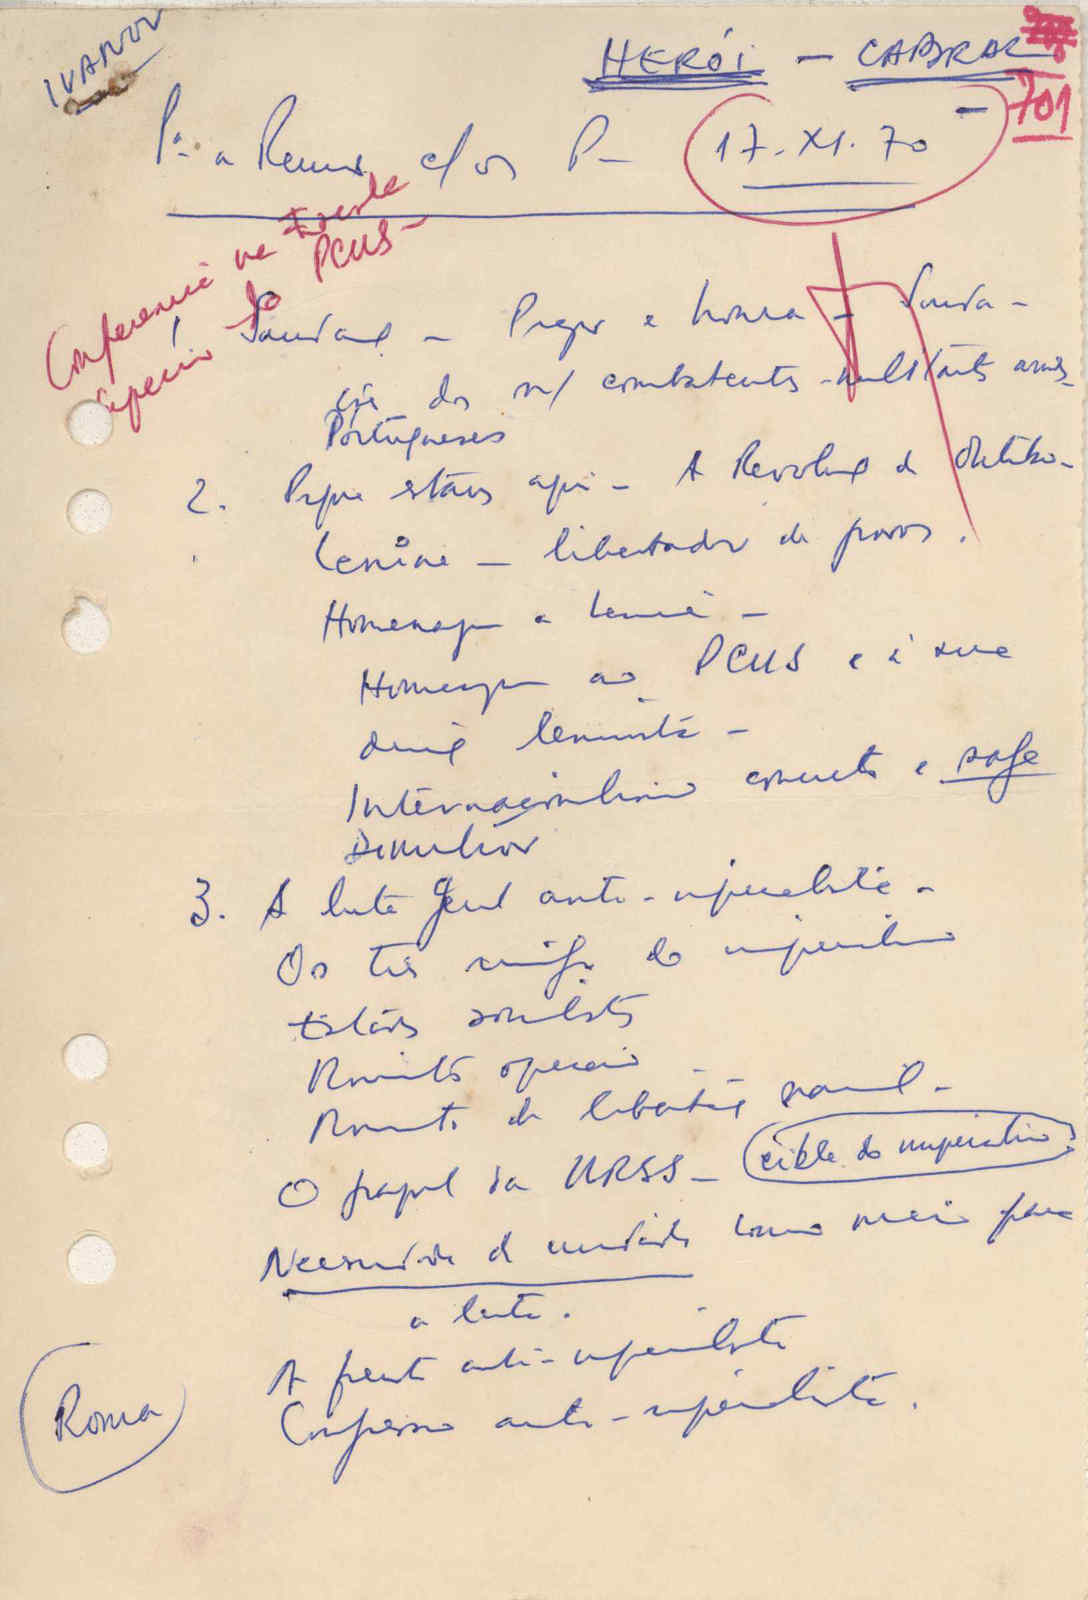 IVANOV
HERÓI - CABRAL
701
Pª a Reun. c/ os P- 17-XI.70 -
Conferência na Escola
Superior do PCUS -
1 Saudaç - Prazer e honra - Sauda-
ções dos n/ combatentes - militantes
Portugueses
2. Porque estamos aqui - A Revoluç de Outubro -
Lenine - libertador de povos.
Homenagem a Lenine -
Homenagem ao PCUS e à sua
direcç leninista -
Internacionalismo concreto e
3. A luta geral anti-imperialista -
Os três do imperialismo
Estados socialistas
Movimento operário
Movimento de libertaç nacional -
O papel da URSS - do imperialismo
Necessidade de unidade como meio para
a luta.
A frente anti-imperialista
Congresso anti-imperialista.
Roma